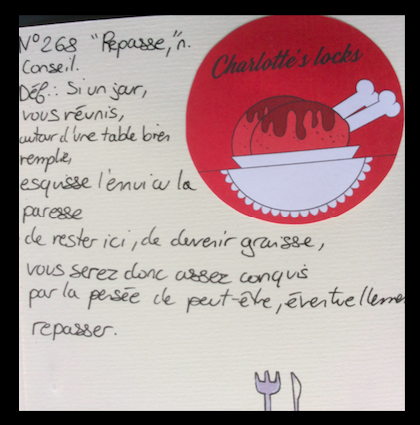 N°268 "Repasse," n.
Conseil.
Déf.: Si un jour,
vous réunis,
autour d'une table bien
remplie,
esquisse l'envie ou la
paresse
de rester ici, de devenir graisse,
vous serez donc assez conquis
par la pensée de peut-être, éventuellemen
repasser.
Charlotte's locks